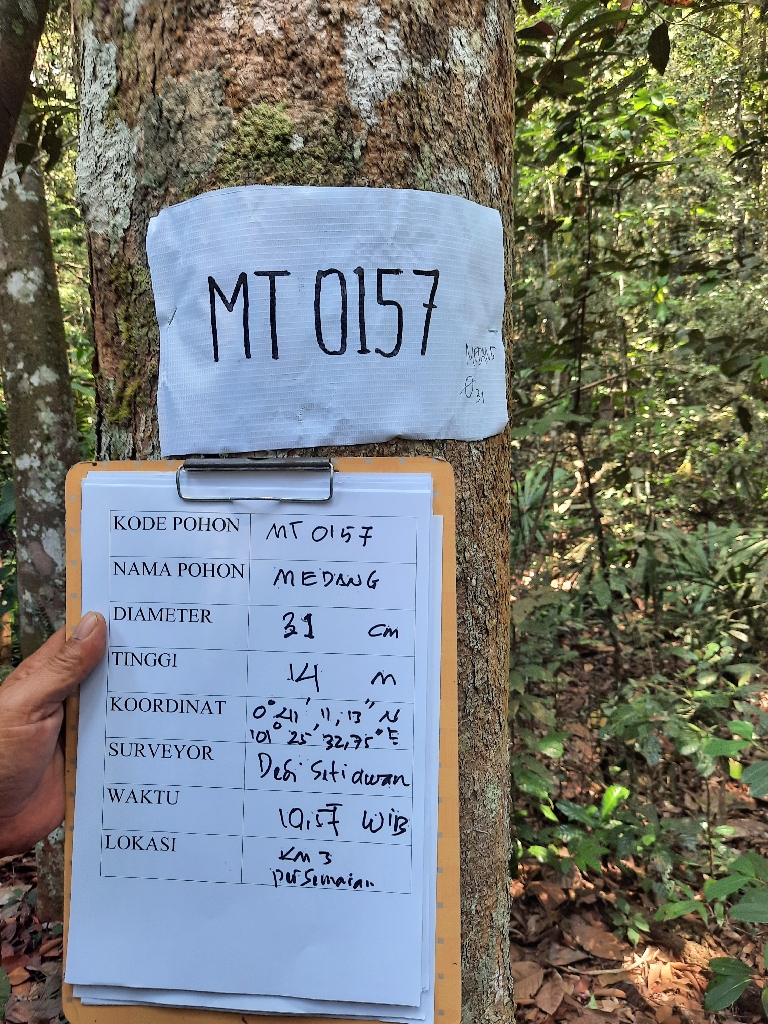 MT 0157
MEDANG
Ø 31
KODE POHON MT 0157
NAMA POHON MEDANG
DIAMETER 31 cm
TINGGI 14 m
KOORDINAT 0° 41' 11,13" N
101° 25' 32,75" E
SURVEYOR Debi Setiawan
WAKTU 10.57 WIB
LOKASI KM 3
persemaian